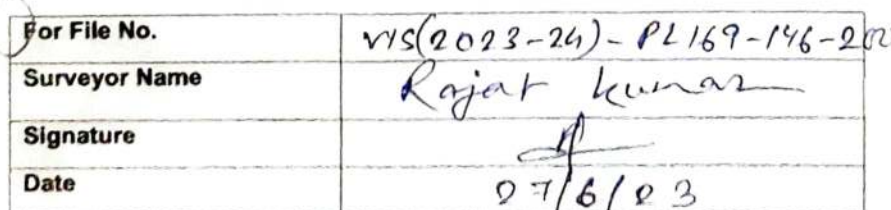 For File No. VIS(2023-24)-PL169-146-202
Surveyor Name Rajat Kumar
Signature
Date 27/6/23